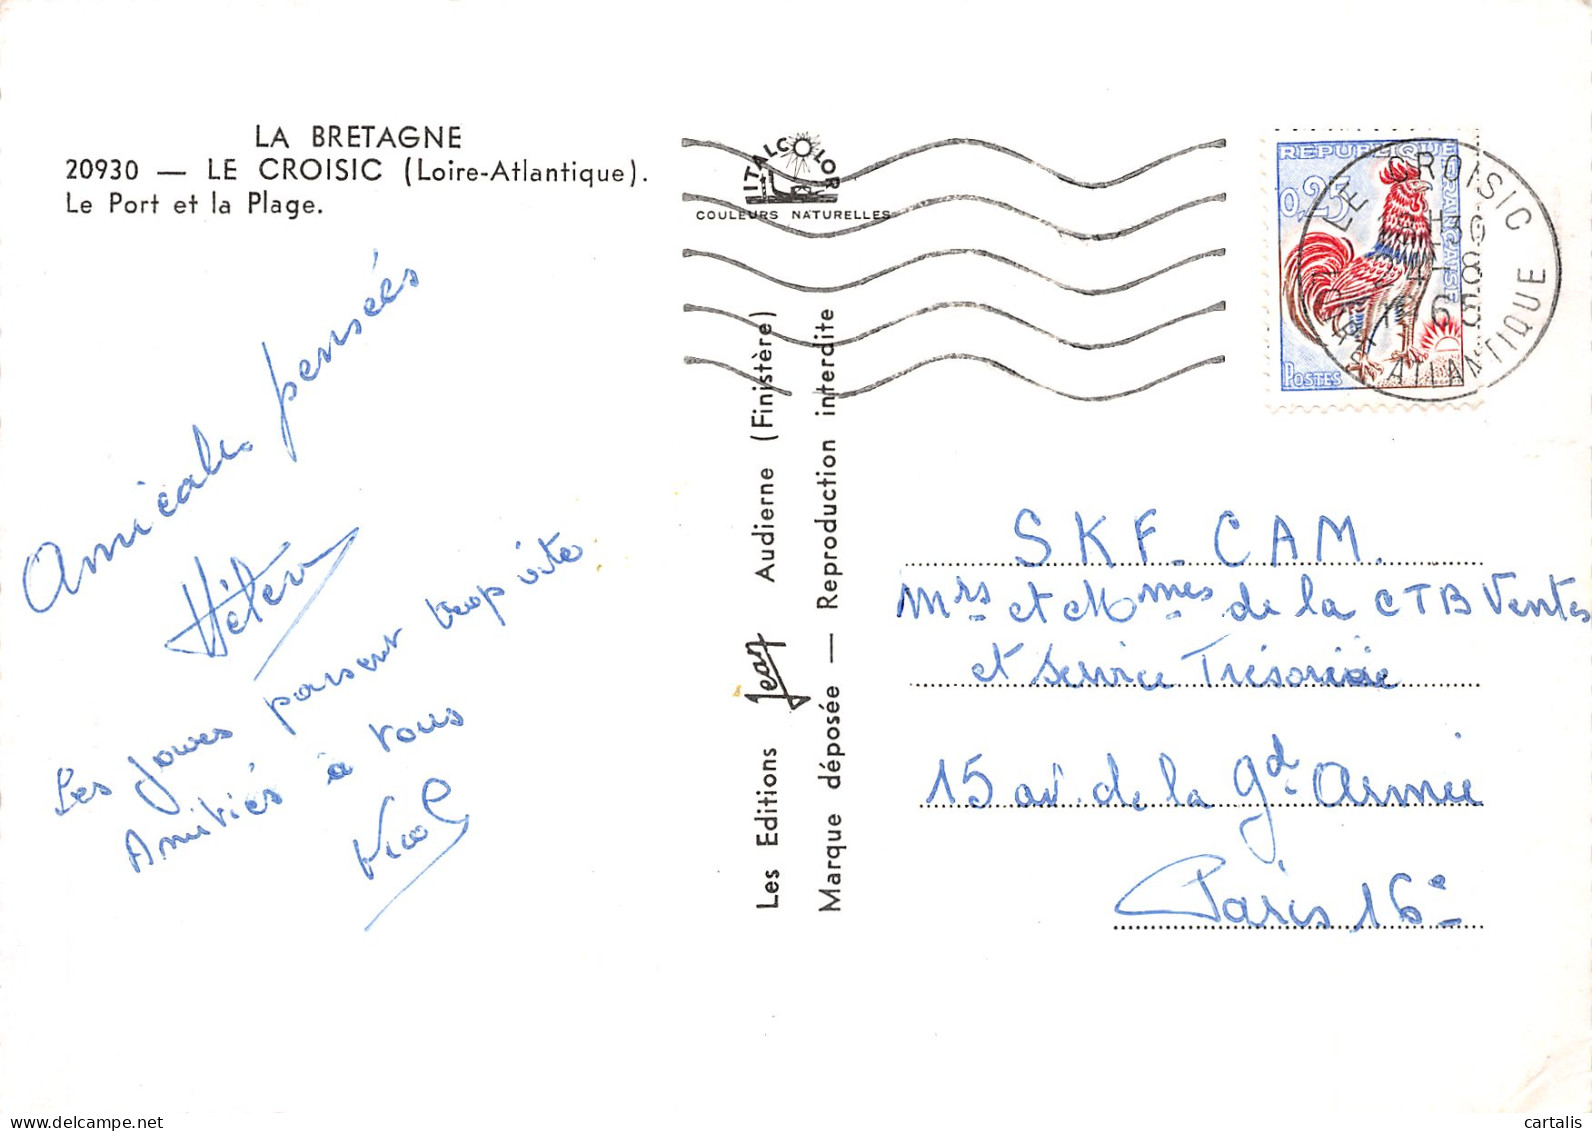 LA BRETAGNE
20930 — LE CROISIC (Loire-Atlantique).
Le Port et la Plage.
Amicales pensées
Les jours passent trop vite
Amitiés à tous
ITALCOLOR
COULEURS NATURELLES
Les Editions Jean Audierne (Finistère)
Marque déposée — Reproduction interdite
REPUBLIQUE
FRANÇAISE
0,25
POSTES
LE CROISIC
ATLANTIQUE
S.K.F. C.A.M.
Mrs et Mmes de la CTB Ventes
et Service Trésorerie
15 av. de la Gd Armée
Paris 16e
cartalis